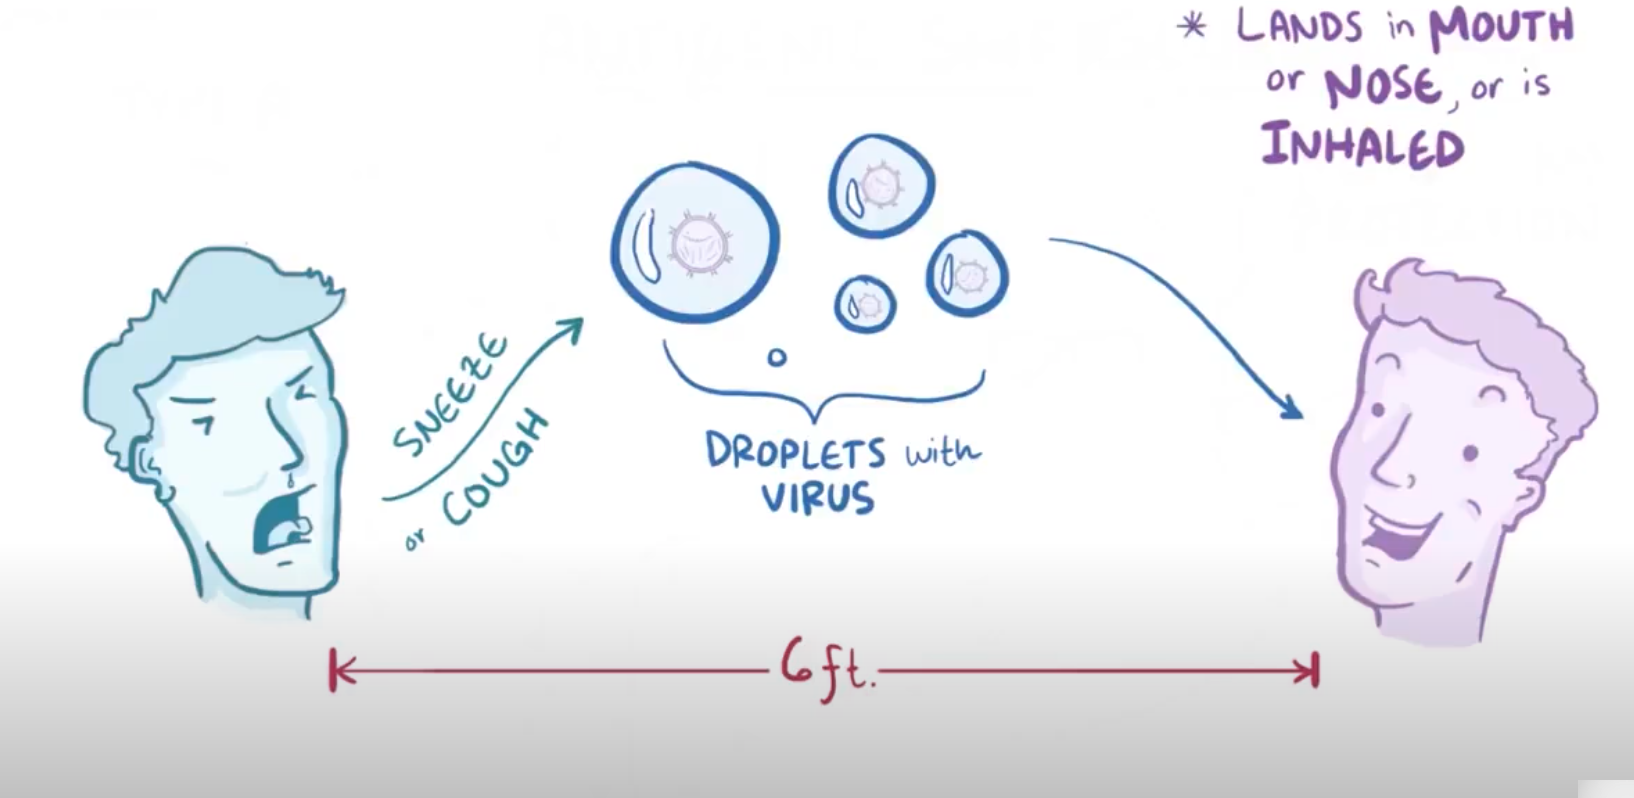 * LANDS in MOUTH
or NOSE, or is
INHALED
SNEEZE
or COUGH
DROPLETS with
VIRUS
6 ft.